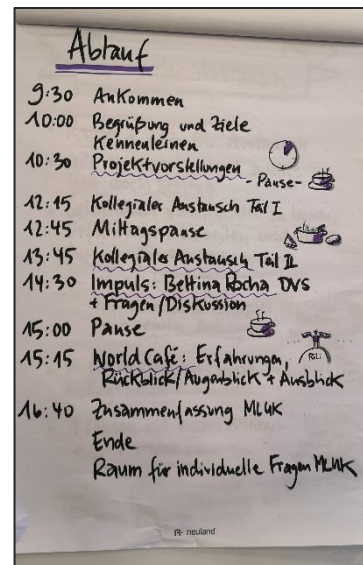 Ablauf
9:30 Ankommen
10:00 Begrüßung und Ziele
Kennenlernen
10:30 Projektvorstellungen
- Pause -
12:15 Kollegialer Austausch Teil I
12:45 Mittagspause
13:45 Kollegialer Austausch Teil II
14:30 Impuls: Bettina Rocha DVS
+ Fragen/Diskussion
15:00 Pause
15:15 World Café: Erfahrungen,
Rückblick/Augenblick + Ausblick
16:40 Zusammenfassung MLUK
Ende
Raum für individuelle Fragen MLUK
neuland